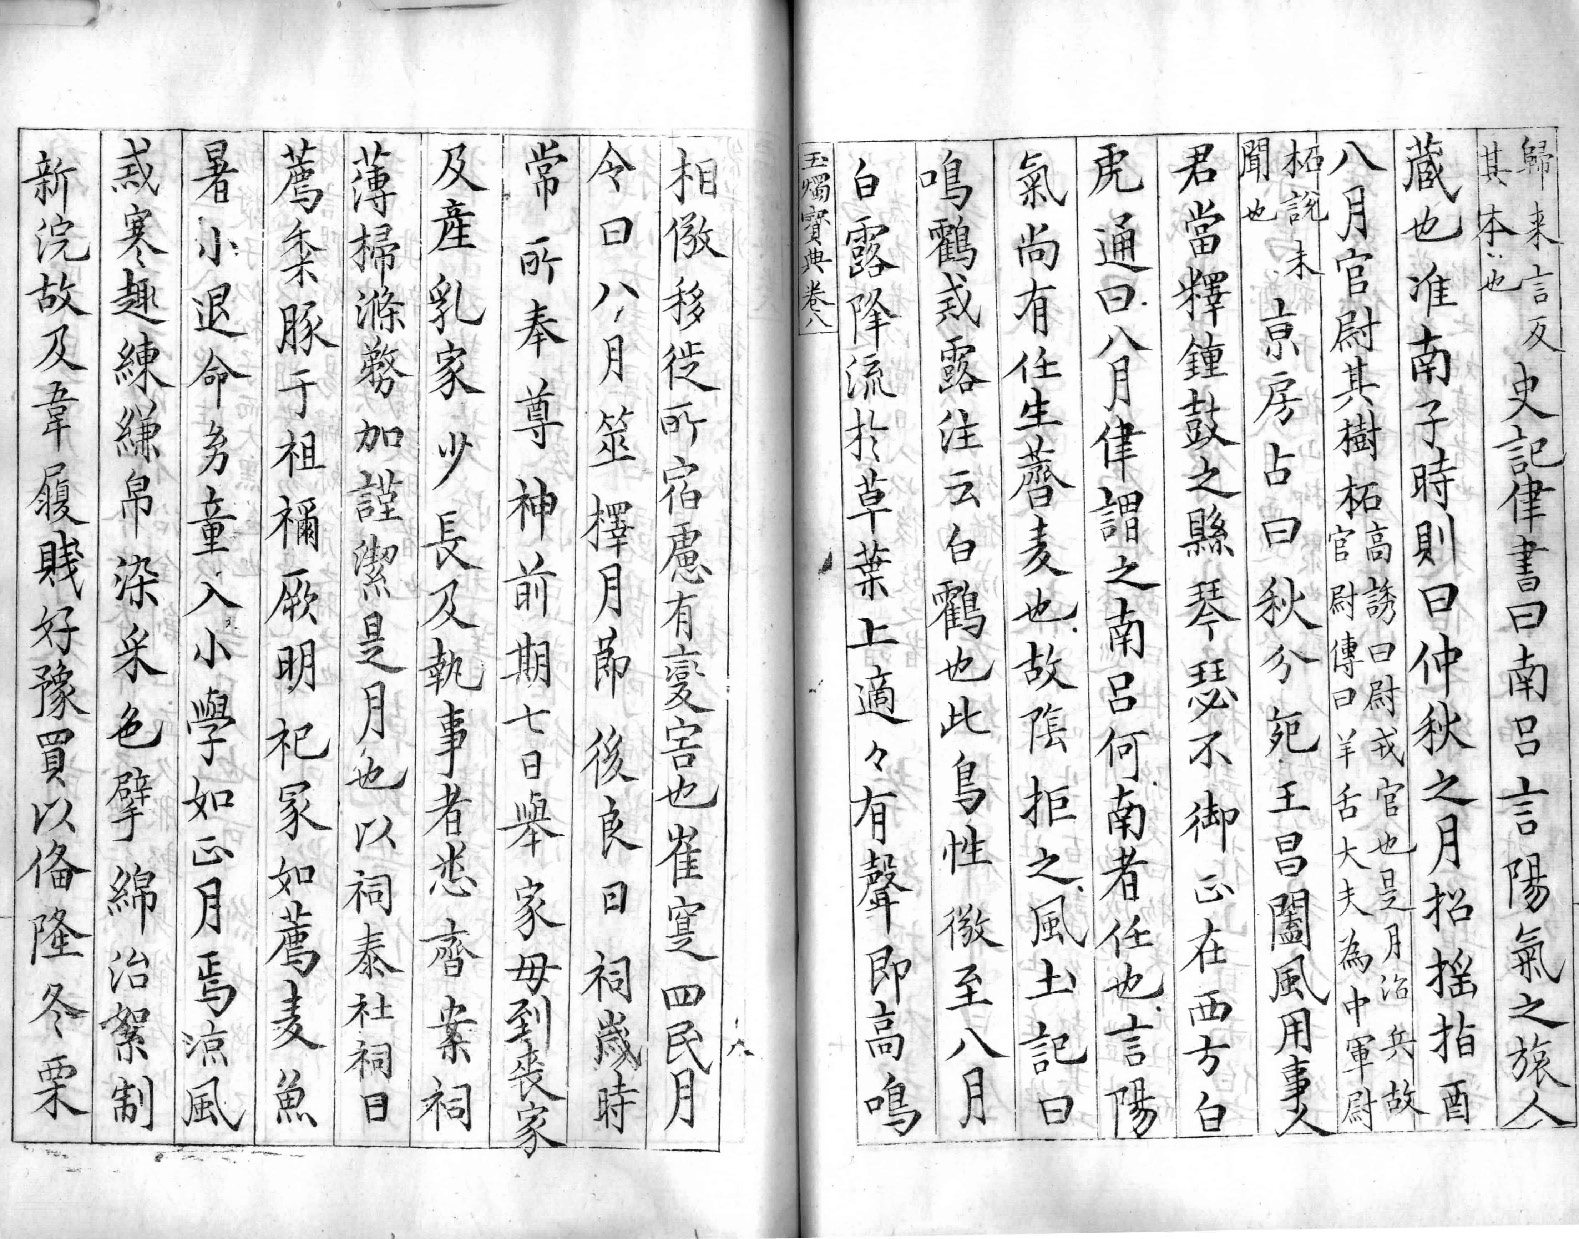 歸来言反其本〻也史記律書曰南呂言陽氣之旅入
蔵也淮南子時則曰仲秋之月招搖指酉
八月官尉其樹柘高誘曰尉戎官也是月治兵故官尉傳曰羊舌大夫為中軍尉
柘説未聞也京房占曰秋分兊王昌闔風用事人
君當釋鍾鼓之縣琴瑟不御正在西方白
虎通曰八月律謂之南呂何南者任也言陽
氣尚有任生薺麦也故陰拒之風土記曰
鳴鸛戒露注云白鸛也此鳥性儆至八月
白露降流於草葉上適々有聲即高鳴
玉燭寳典卷八
相儆移徙所宿慮有變害也崔寔四民月
令曰八月筮擇月節後良日祠歳時
常所奉尊神前期七日舉家毋到喪家
及産乳家少長及執事者悉齊案祠
薄掃滌務加謹潔是月也以祠泰社祠日
薦黍豚于祖禰厥明祀冢如薦麦魚
暑小退命幼童入小學如正月焉凉風
戒寒趣練縑帛染采色擘綿治絮制
新浣故及韋履賤好豫買以俻隆冬栗
八